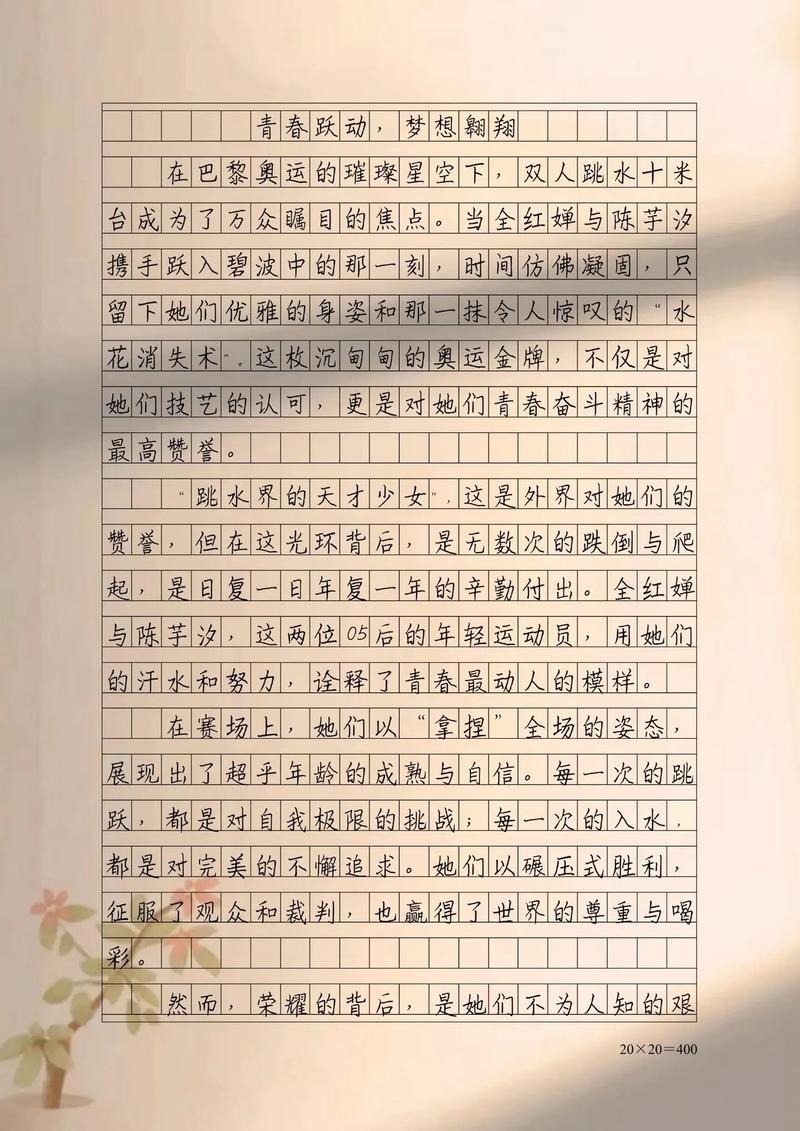 青春跃动，梦想翱翔
在巴黎奥运的璀璨星空下，双人跳水十米
台成为了万众瞩目的焦点。当全红婵与陈芋汐
携手跃入碧波中的那一刻，时间仿佛凝固，只
留下她们优雅的身姿和那一抹令人惊叹的“水
花消失术”。这枚沉甸甸的奥运金牌，不仅是对
她们技艺的认可，更是对她们青春奋斗精神的
最高赞誉。
“跳水界的天才少女”，这是外界对她们的
赞誉，但在这光环背后，是无数次的跌倒与爬
起，是日复一日年复一年的辛勤付出。全红婵
与陈芋汐，这两位05后的年轻运动员，用她们
的汗水和努力，诠释了青春最动人的模样。
在赛场上，她们以“拿捏”全场的姿态，
展现出了超乎年龄的成熟与自信。每一次的跳
跃，都是对自我极限的挑战；每一次的入水，
都是对完美的不懈追求。她们以碾压式胜利，
征服了观众和裁判，也赢得了世界的尊重与喝
彩。
然而，荣耀的背后，是她们不为人知的艰
20×20=400